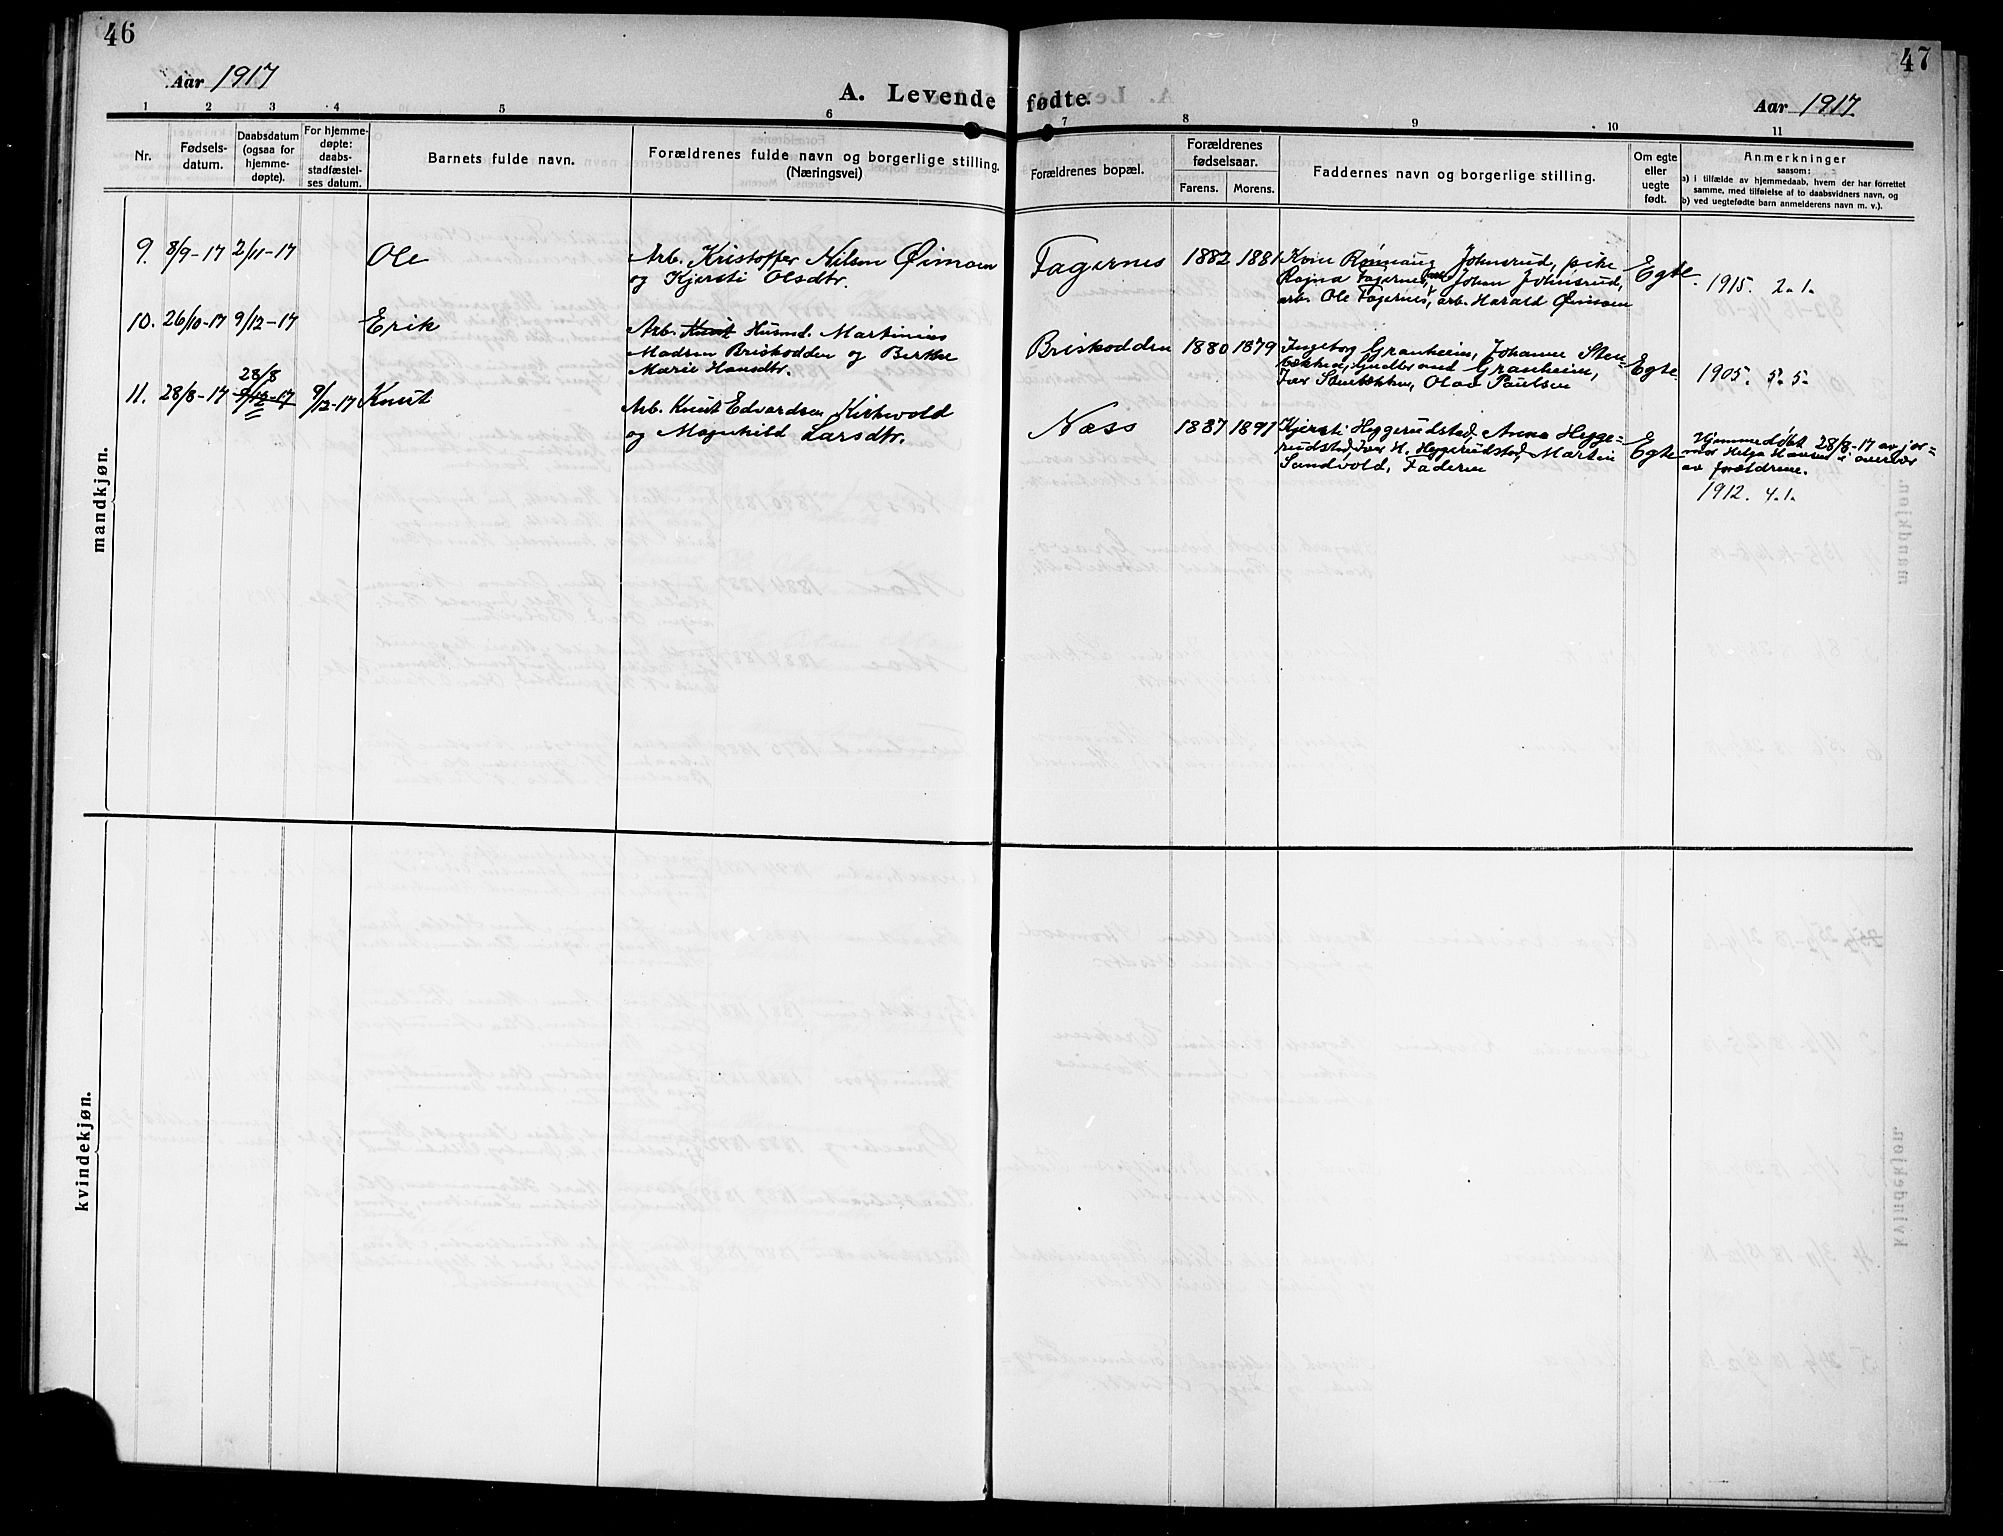 46
47
Aar 1917
A. Levende fødte.
Aar 1917.
1 2 3 4 5 6 7 8 9 10 11
Nr.
Fødsels-
datum.
Daabsdatum
(ogsaa for
hjemme-
døpte).
For hjemme-
døpte:
daabs-
stadfæstel-
ses datum.
Barnets fulde navn.
Forældrenes fulde navn og borgerlige stilling.
(Næringsvei)
Forældrenes bopæl.
Forældrenes
fødselsaar.
Farens. Morens.
Faddernes navn og borgerlige stilling.
Om egte
eller
uegte
født.
Anmerkninger
saasom:
a) i tilfælde av hjemmedaab, hvem der har forrettet
samme, med tilføielse av to daabsvidners navn, og
b) ved uegtefødte barn anmelderens navn m. v.).
mandkjøn.
9. 8/9-17 2/11-17
Ole
Arb. Kristoffer Nilsen Øimoen
og Kjersti Olsdtr.
Fagernes
1882 1881
Kvin Rönnaug Johnsrud, pike
Ragna Fagernes, Johan Johnsrud,
arb. Ole Fagernes, arb. Harald Øimoen
Egte.
1915. 2.1.
10. 26/10-17 9/12-17
Erik
Arb. Knut Husmd. Martinius
Madsen Briskodden og Berthe
Marie Hansdtr.
Briskodden
1880 1879
Ingeborg Granheim, Johanne Sten
bækken, Gudbrand Granheim,
Iver Stenbækken, Olav Paulsen
Egte
1905. 5.5.
11. 28/8-17
28/8
9/12-17
9/12-17
Knut
Arb. Knut Edvardsen Kirkvold
og Magnhild Larsdtr.
Næss
1887 1891
Kjersti Heggerudstad, Anna Hegge=
rudstad, Iver H. Heggerudstad, Martin
Sandvold, Faderen
Egte
Hjemmedøbt 28/8-17 av jor=
mor Helga Hansen i overvær
av forældrene.
1912. 4.1.
kvindekjøn.